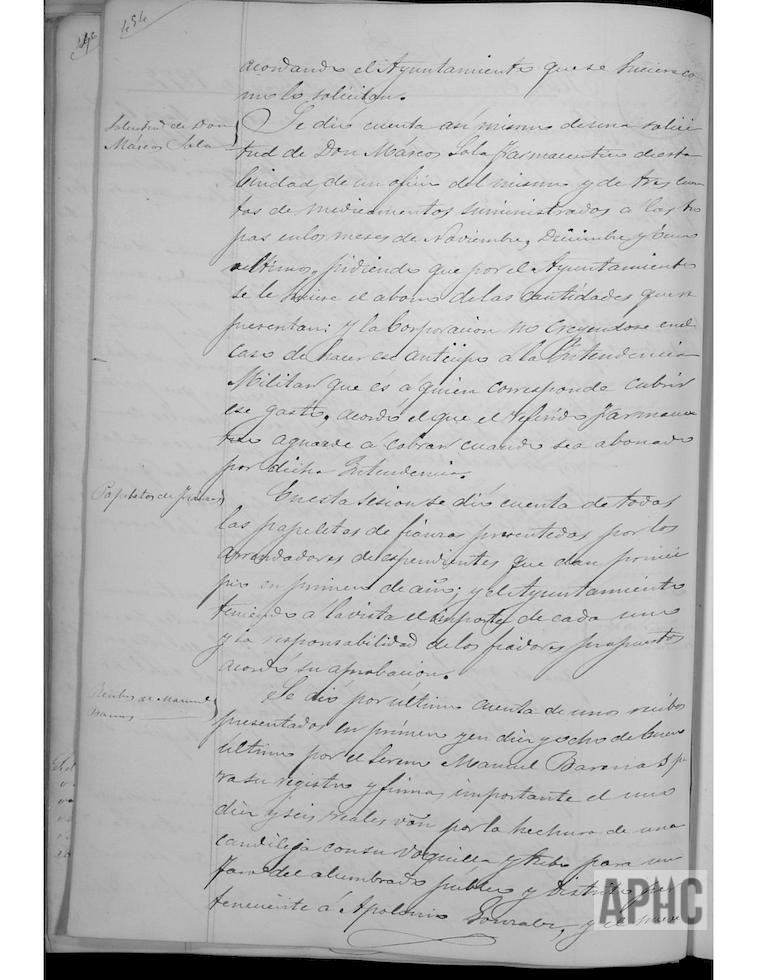 454
acordando el Ayuntamiento que se hiciera co
mo lo solicitan.
Solicitud de Don
Márcos Sola
Se dió cuenta asi mismo de una solici
tud de Don Márcos Sola Farmaceutico de esta
Ciudad, de un oficio del mismo y de tres cuen
tas de medicamentos suministrados a las tro
pas en los meses de Noviembre, Diciembre y Enero
ultimos, pidiendo que por el Ayuntamiento
se le hiciese el abono de las cantidades que re
presentan: y la Corporacion no creyendose en el
caso de hacer ese anticipo á la Intendencia
Militar que és á quien corresponde cubrir
ese gasto, acordó el que el referido Farmaceu
tico aguarde a cobrar cuando sea abonado
por dicha Intendencia.
Papeletas de fianzas
En esta sesion se dió cuenta de todas
las papeletas de fianzas presentadas por los
arrendadores de espendientes que dan princi
pio en primero de año; y el Ayuntamiento
teniendo a la vista el importe de cada uno
y la responsabilidad de los fiadores propuestos
acordó su aprobacion.
Recibos de Manuel
Barcos
Se dió por ultimo cuenta de unos recibos
presentados en primero y en diez y ocho de Enero
ultimo por el Sereno Manuel Barcos pa
ra su registro y firma, importante el uno
diez y seis reales von por la hechura de una
candileja con su boquilla y tubo para un
Farol del alumbrado publico y distrito per
teneciente á Apolonio Gonzalez, y el
APHC